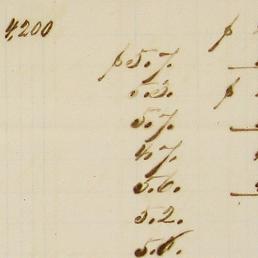 4,200
p. 5.7.
5.3.
5.7.
4.7.
5.6.
5.2.
5.6.